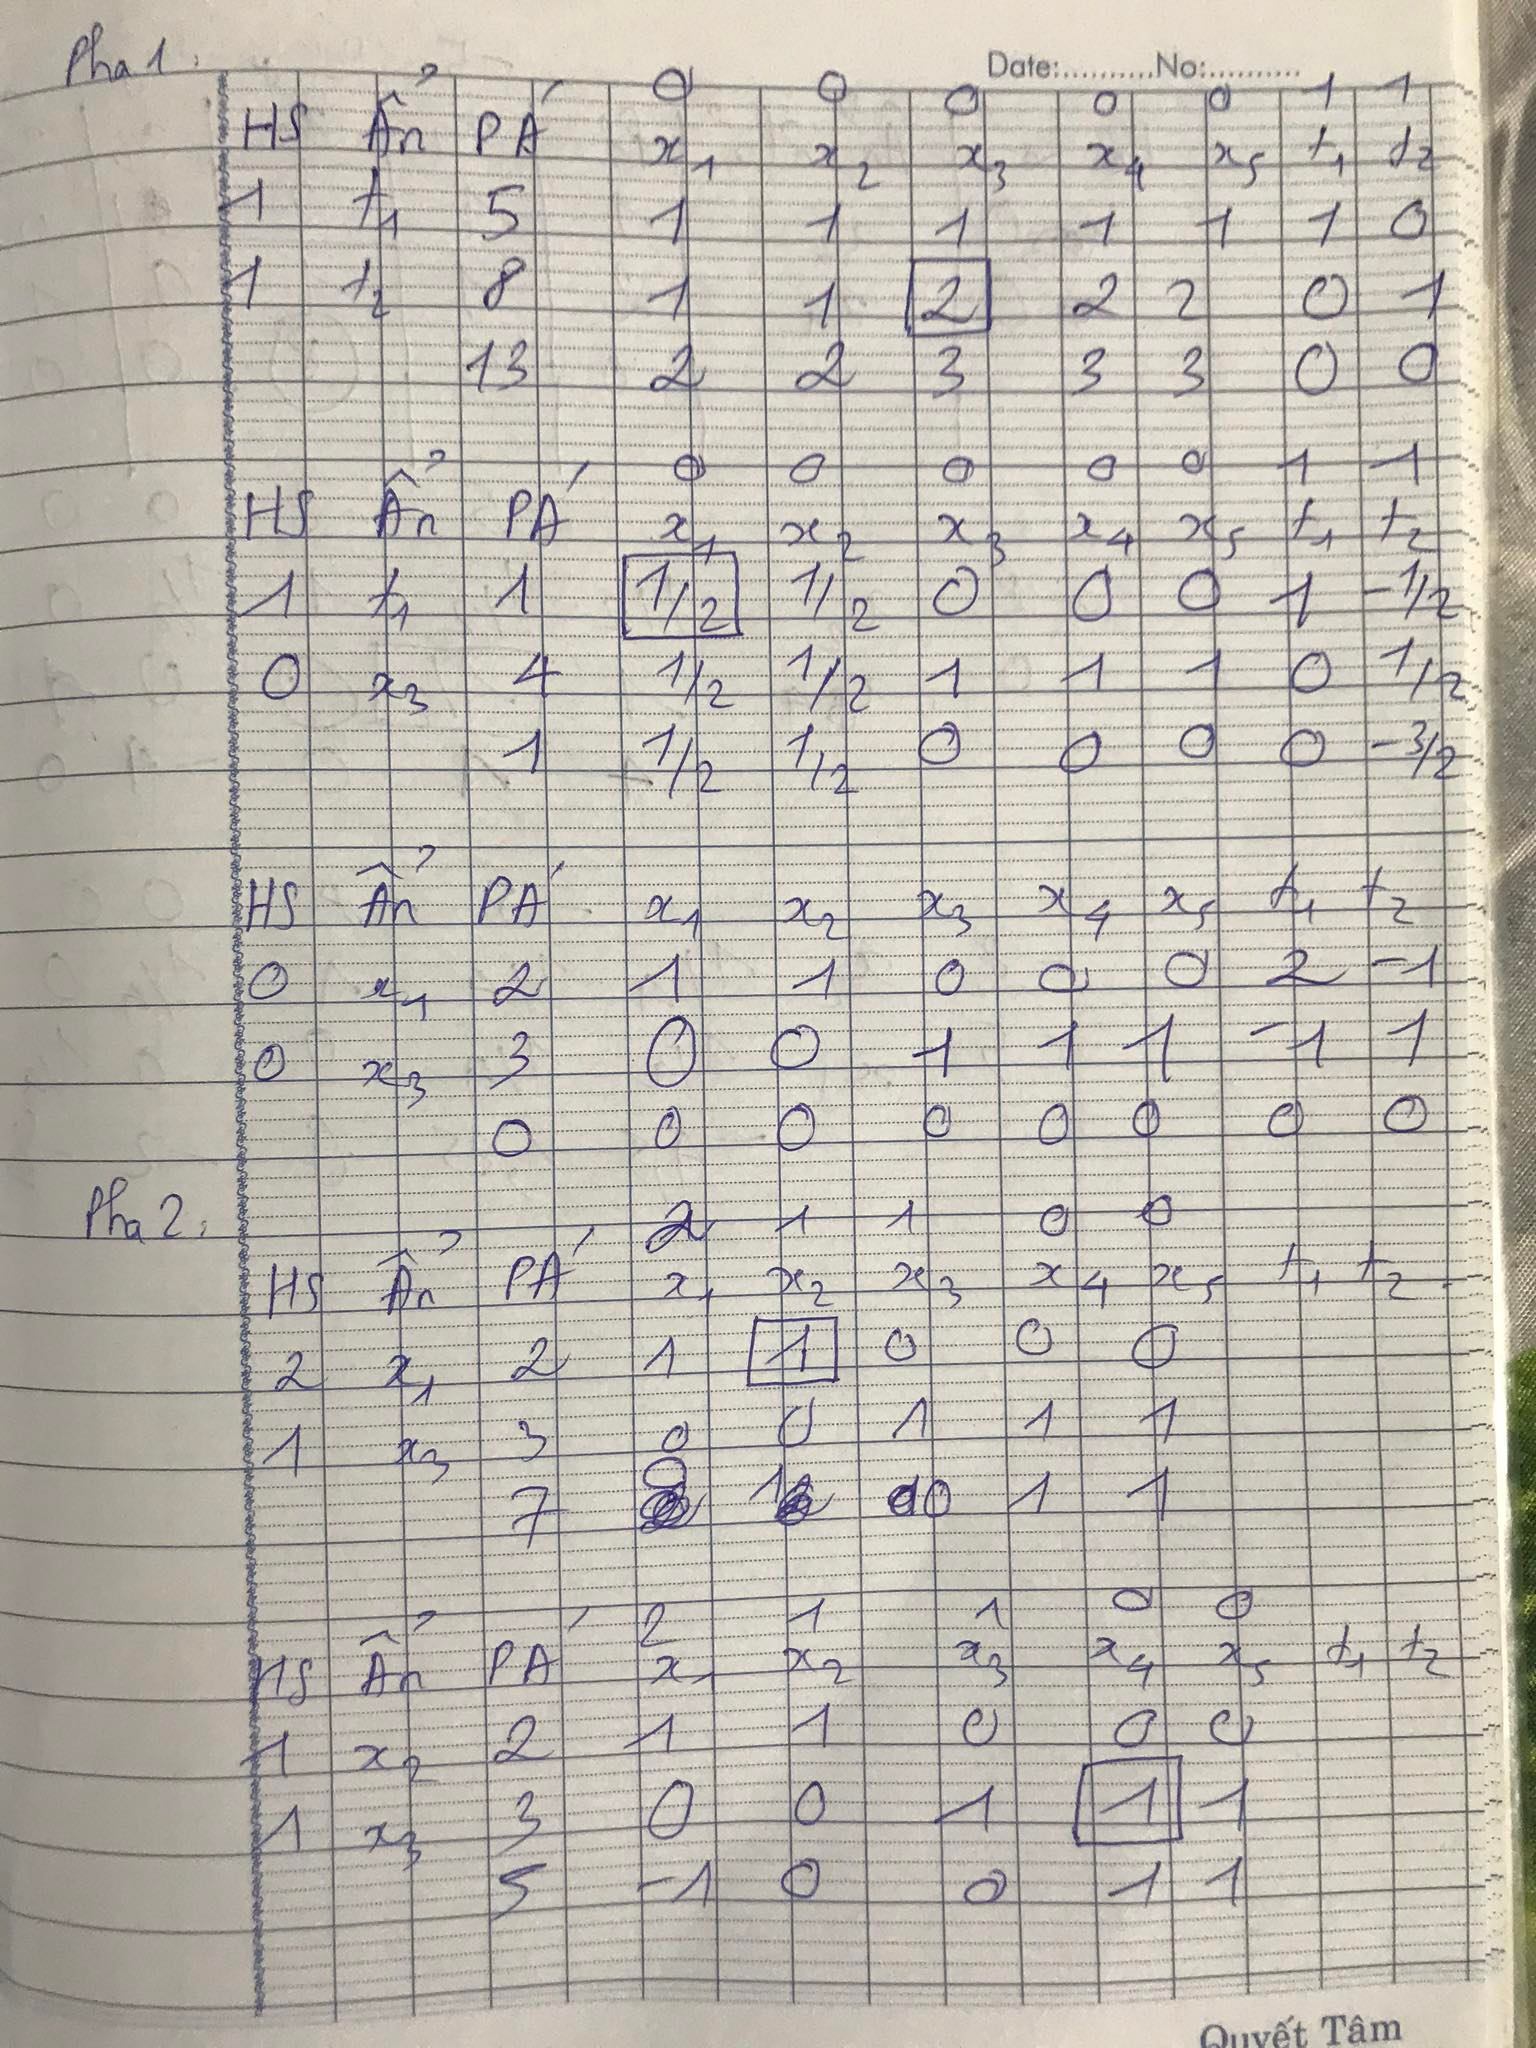 Pha 1:
Date:..........No:..........
0 0 0 0 0 1 1
HS Ẩn PÁ x₁ x₂ x₃ x₄ x₅ t₁ t₂
1 t₁ 5 1 1 1 1 1 1 0
1 t₂ 8 1 1 2 2 2 0 1
13 2 2 3 3 3 0 0
0 0 0 0 0 1 1
HS Ẩn PÁ x₁ x₂ x₃ x₄ x₅ t₁ t₂
1 t₁ 1 1/2 1/2 0 0 0 1 -1/2
0 x₃ 4 1/2 1/2 1 1 1 0 1/2
1 1/2 1/2 0 0 0 0 -3/2
HS Ẩn PÁ x₁ x₂ x₃ x₄ x₅ t₁ t₂
0 x₁ 2 1 1 0 0 0 2 -1
0 x₃ 3 0 0 1 1 1 -1 1
0 0 0 0 0 0 0 0
Pha 2:
2 1 1 0 0
HS Ẩn PÁ x₁ x₂ x₃ x₄ x₅ t₁ t₂
2 x₁ 2 1 1 0 0 0
1 x₃ 3 0 0 1 1 1
7 0 1 0 1 1
2 1 1 0 0
HS Ẩn PÁ x₁ x₂ x₃ x₄ x₅ t₁ t₂
1 x₂ 2 1 1 0 0 0
1 x₃ 3 0 0 1 1 1
5 -1 0 0 1 1
Quyết Tâm